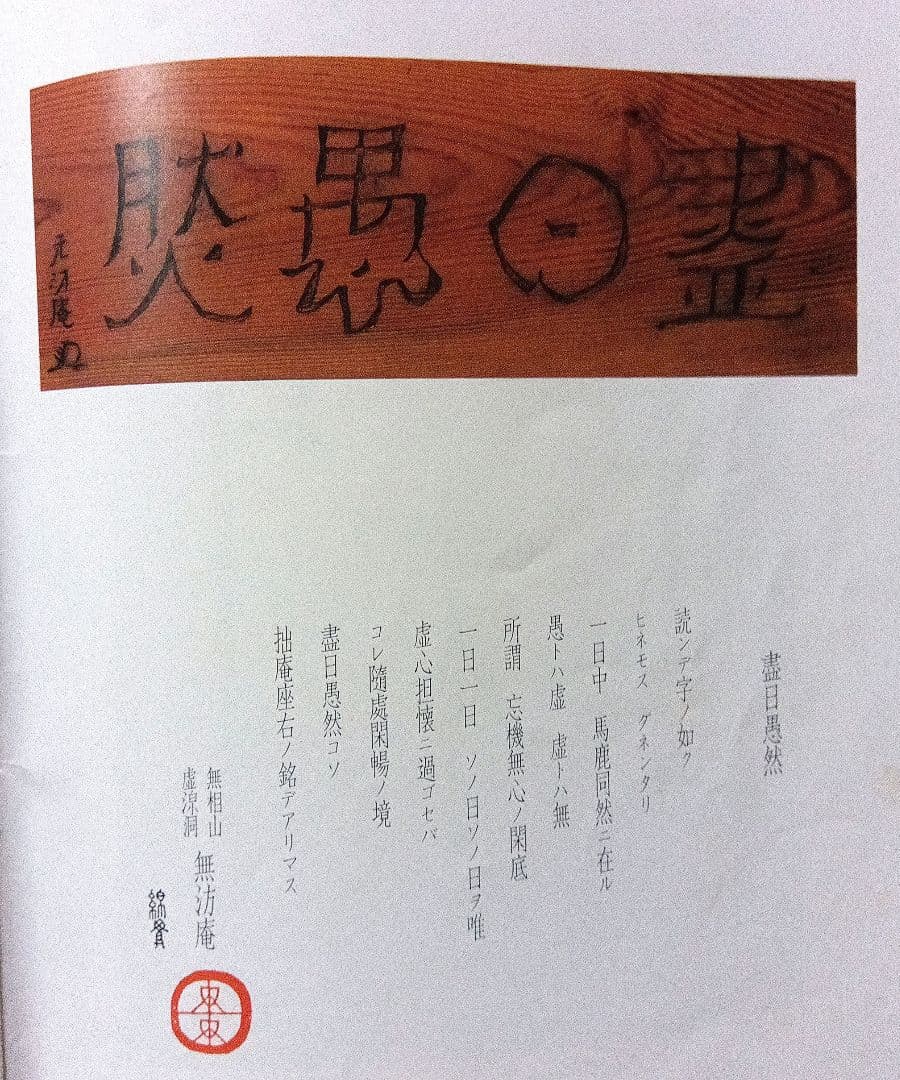 盡日愚然
无汸庵
盡日愚然
読ンデ字ノ如ク
ヒネモス グネンタリ
一日中 馬鹿同然ニ在ル
愚トハ虚 虚トハ無
所謂 忘機無心ノ閑底
一日一日 ソノ日ソノ日ヲ唯
虚心担懐ニ過ゴセバ
コレ隨處閑暢ノ境
盡日愚然コソ
拙庵座右ノ銘デアリマス
無相山
虚湶洞
無汸庵
綿貫